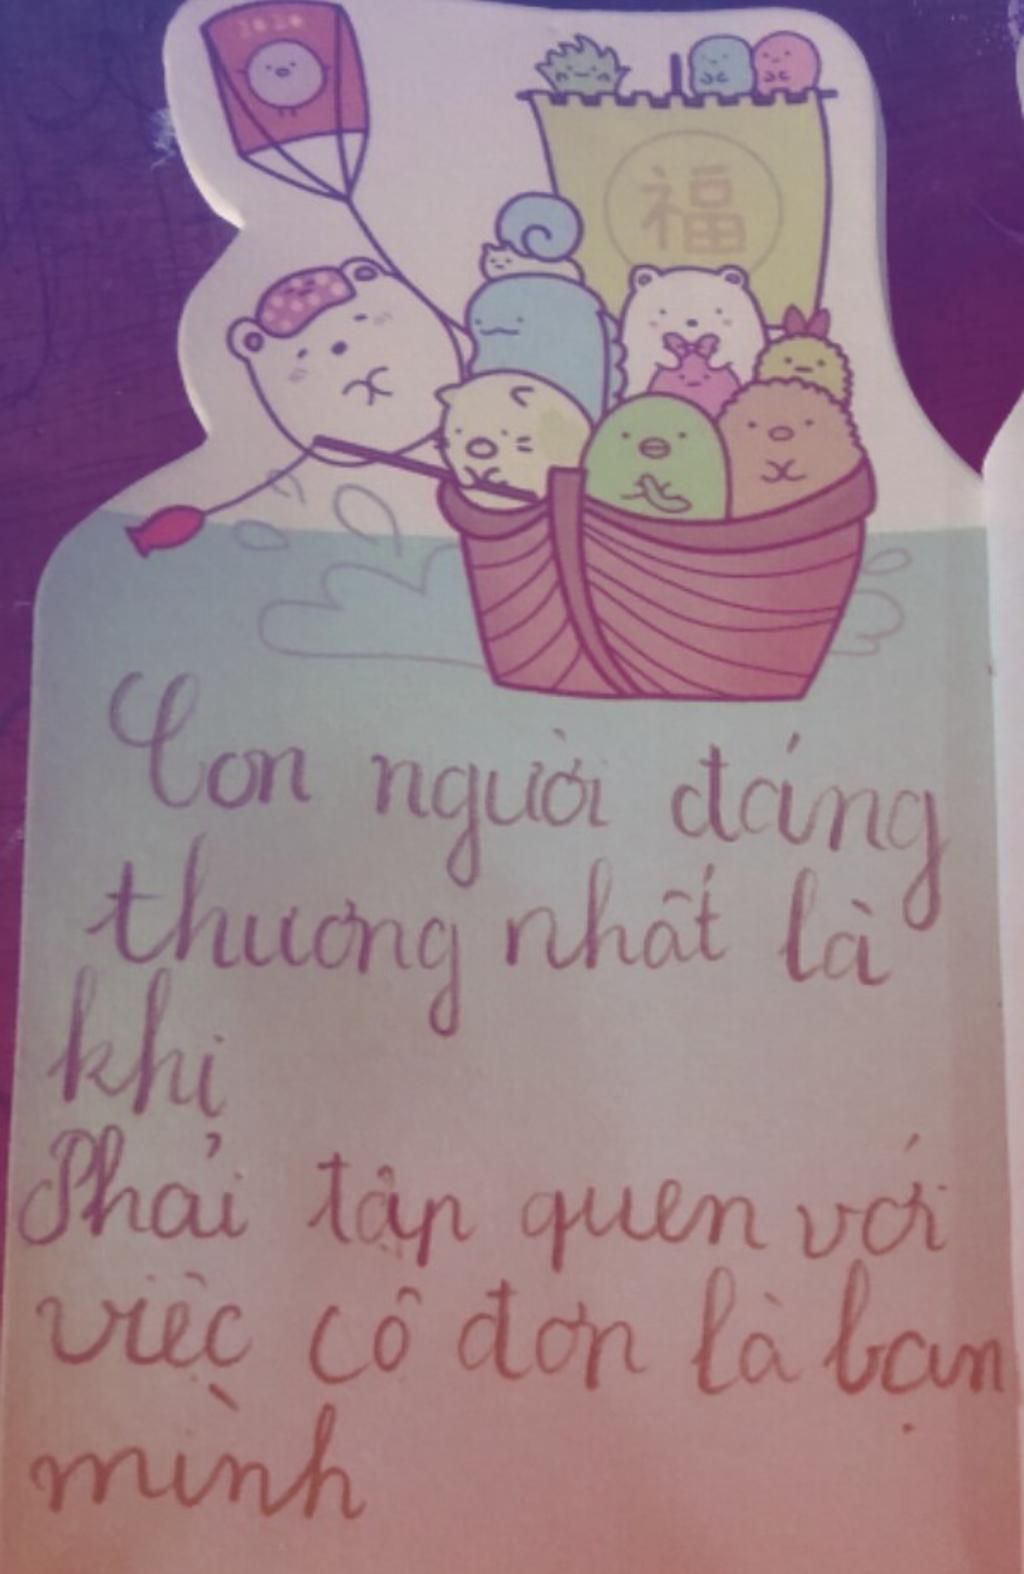 2020
福
Con người đáng
thương nhất là
khi
Phải tập quen với
việc cô đơn là bạn
mình